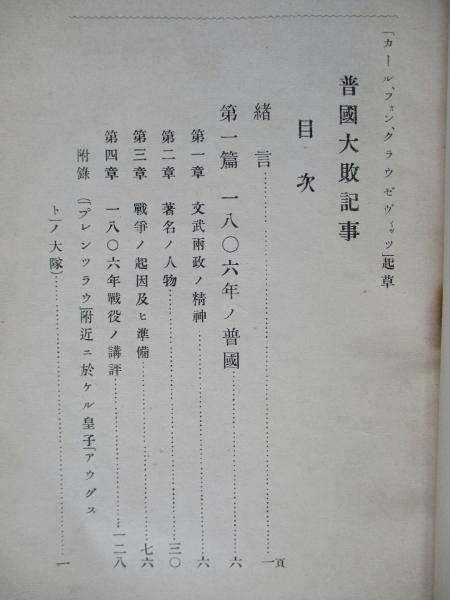 「カール、フォン、クラウゼヴィッツ」起草
普國大敗記事
目次
緒言……一頁
第一篇 一八〇六年ノ普國……六
第一章 文武兩政ノ精神……六
第二章 著名ノ人物……三〇
第三章 戰爭ノ起因及ヒ準備……七六
第四章 一八〇六年戰役ノ講評……一二八
附錄(「プレンツラウ」附近ニ於ケル皇子「アウグス
ト」ノ大隊)……一